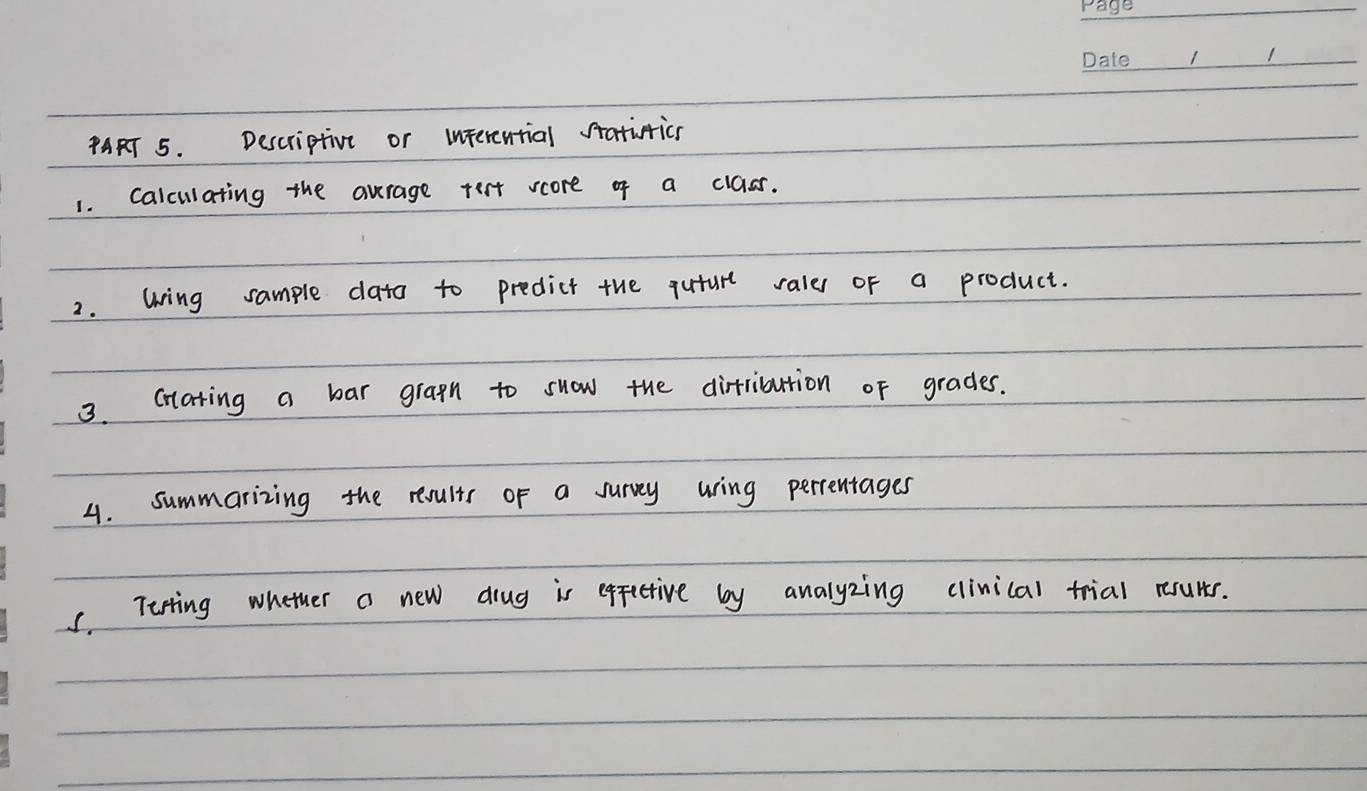 Page
Date / /
PART 5. Descriptive or Inferential Statistics
1. Calculating the average test score of a class.
2. Using sample data to predict the future sales of a product.
3. Creating a bar graph to show the distribution of grades.
4. Summarizing the results of a survey using percentages
5. Testing whether a new drug is effective by analyzing clinical trial results.